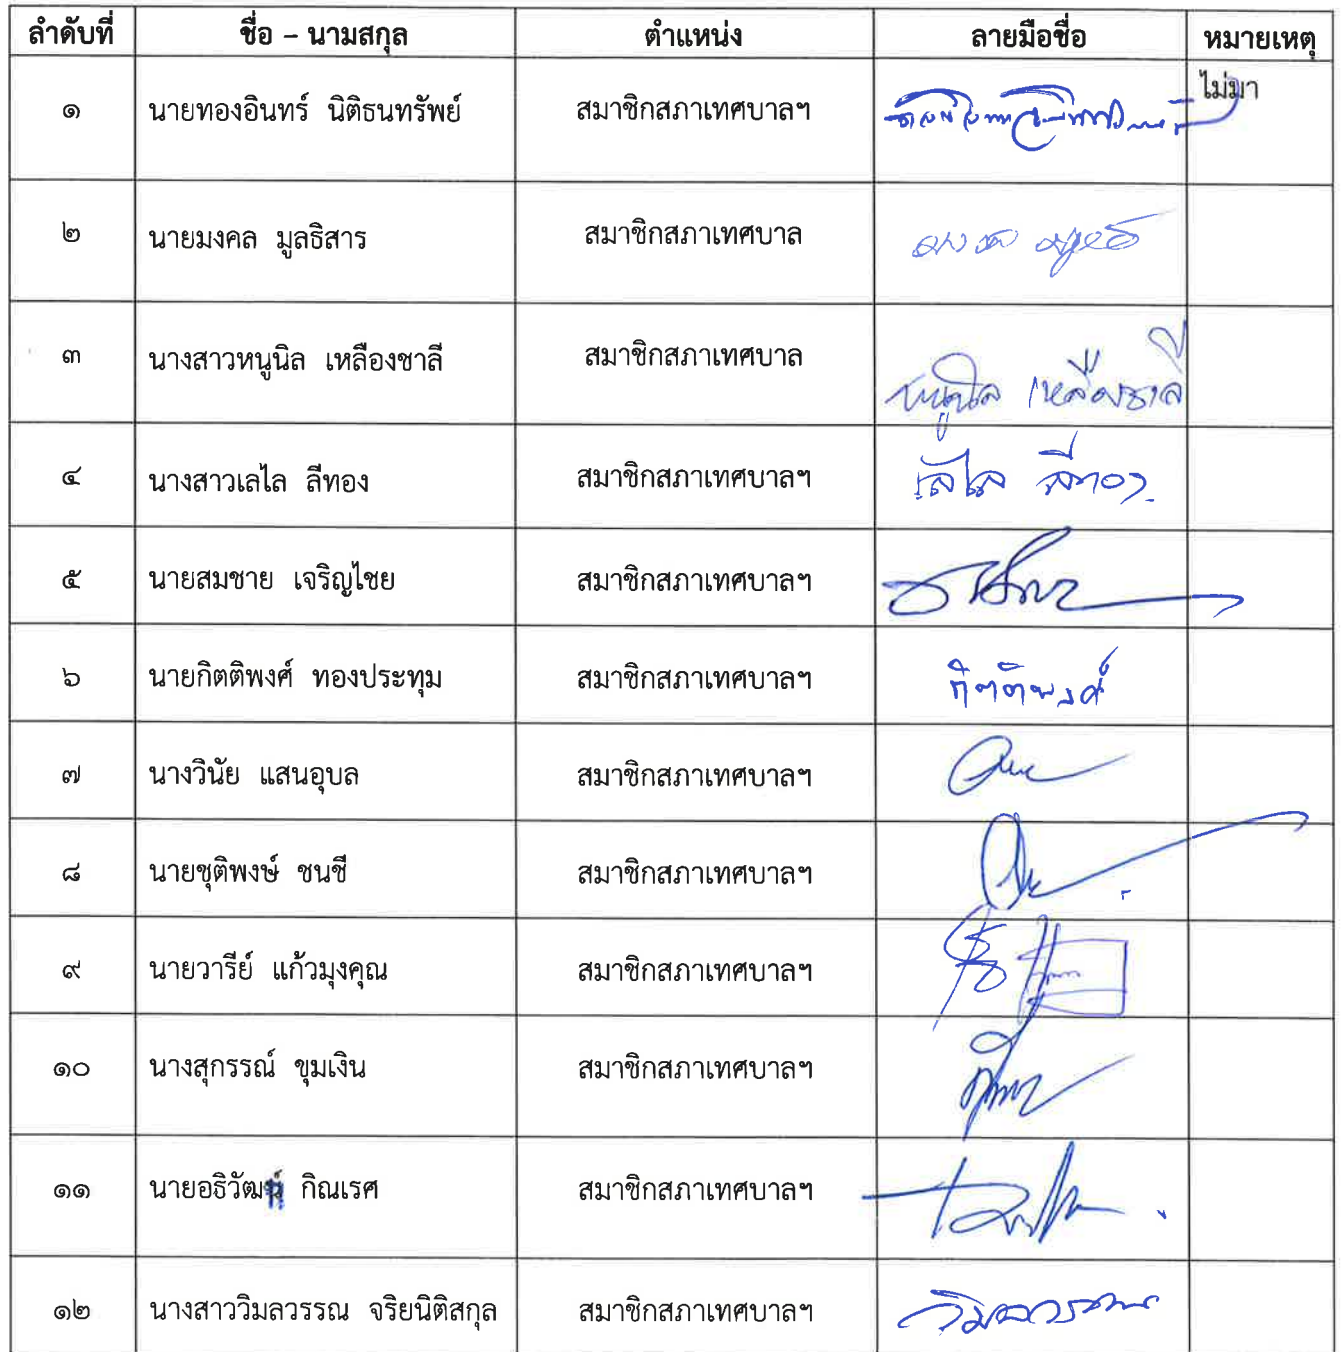 ลำดับที่ ชื่อ – นามสกุล ตำแหน่ง ลายมือชื่อ หมายเหตุ
๑ นายทองอินทร์ นิติธนทรัพย์ สมาชิกสภาเทศบาลฯ ไม่มา
๒ นายมงคล มูลธิสาร สมาชิกสภาเทศบาล
๓ นางสาวหนูนิล เหลืองชาลี สมาชิกสภาเทศบาล หนูนิล เหลืองชาลี
๔ นางสาวเลไล ลีทอง สมาชิกสภาเทศบาลฯ เลไล ลีทอง
๕ นายสมชาย เจริญไชย สมาชิกสภาเทศบาลฯ
๖ นายกิตติพงศ์ ทองประทุม สมาชิกสภาเทศบาลฯ กิตติพงศ์
๗ นางวินัย แสนอุบล สมาชิกสภาเทศบาลฯ
๘ นายชุติพงษ์ ชนชี สมาชิกสภาเทศบาลฯ
๙ นายวารีย์ แก้วมุงคุณ สมาชิกสภาเทศบาลฯ
๑๐ นางสุกรรณ์ ขุมเงิน สมาชิกสภาเทศบาลฯ
๑๑ นายอธิวัฒน์ กิณเรศ สมาชิกสภาเทศบาลฯ
๑๒ นางสาววิมลวรรณ จริยนิติสกุล สมาชิกสภาเทศบาลฯ วิมลวรรณ